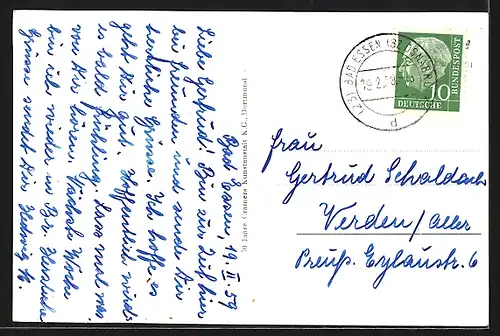 Bad Essen, 19. II. 59
Liebe Gertrud! Bin zur Zeit hier
bei Freunden und sende Dir
herzliche Grüsse. Ich hoffe es
geht Dir gut. Hoffentlich wirds
es bald Frühling. Lass mal was
von Dir hören. Nächste Woche
bin ich wieder in Br. Herzliche
Grüsse sendet Dir Hedwig
Jahre Cramers Kunstanstalt K.G., Dortmund
(23) BAD ESSEN (BZ OSNABRÜCK)
19.2.59
d
10
DEUTSCHE
BUNDESPOST
Frau
Gertrud Schaldach
Verden/Aller
Preuß. Eylaustr. 6